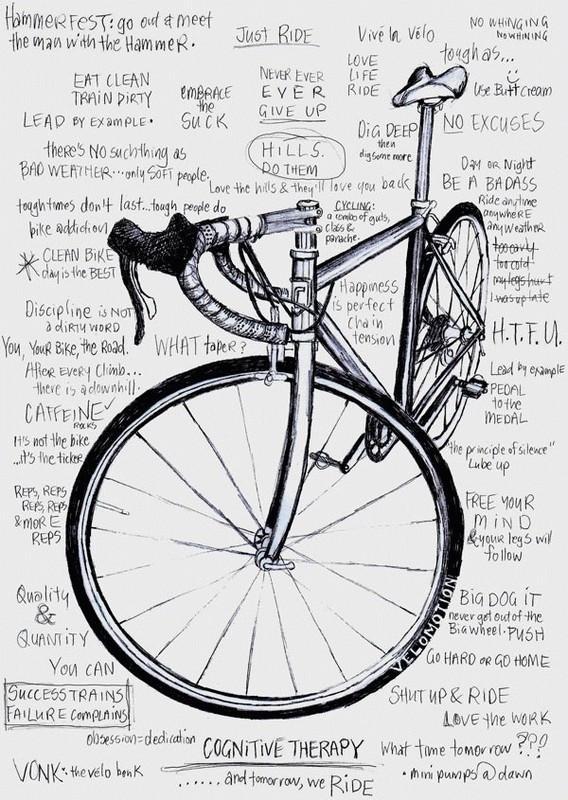 HAMMERFEST: go out & meet
the man with the HAMMER.
JUST RIDE
Vivé la Vélo
NO WHINGING
NO WHINING
tough as...
EAT CLEAN
TRAIN DIRTY
LEAD BY EXAMPLE.
EMBRACE
the
SUCK
NEVER EVER
EVER
GIVE UP
LOVE
LIFE
RIDE
Use Butt Cream
Dig DEEP
then
dig some more
NO EXCUSES
there's NO such thing as
BAD WEATHER...only SOFT people.
HILLS.
DO THEM
Love the hills & they'll love you back
Day or Night
BE A BADASS
Ride anytime
anywhere
any weather
too early
too cold
my legs hurt
I was up late
tough times don't last...tough people do
bike addiction
CYCLING:
a combo of guts,
class &
panache.
CLEAN BIKE
day is the BEST
Discipline is NOT
a dirty WORD
Happiness
is perfect
chain
tension
H.T.F.U.
You, Your Bike, the Road.
WHAT taper?
After EVERY Climb...
there is a downhill.
Lead by example
PEDAL
to the
MEDAL
CAFFEINE
ROCKS
It's not the bike
...it's the ticker
"the principle of silence"
Lube up
REPS, REPS
REPS, REPS
& MORE
REPS
FREE YOUR
MIND
& your legs will
follow
Quality
&
QUANTITY
BIG DOG IT
never get out of the
Big wheel. PUSH
VELOMOTION
YOU CAN
GO HARD OR GO HOME
SUCCESS TRAINS
FAILURE COMPLAINS
SHUT UP & RIDE
LOVE the WORK
obsession=dedication
COGNITIVE THERAPY
What time tomorrow ???
VONK: the vélo bonk
......and tomorrow, we RIDE
• mini pumps @ dawn